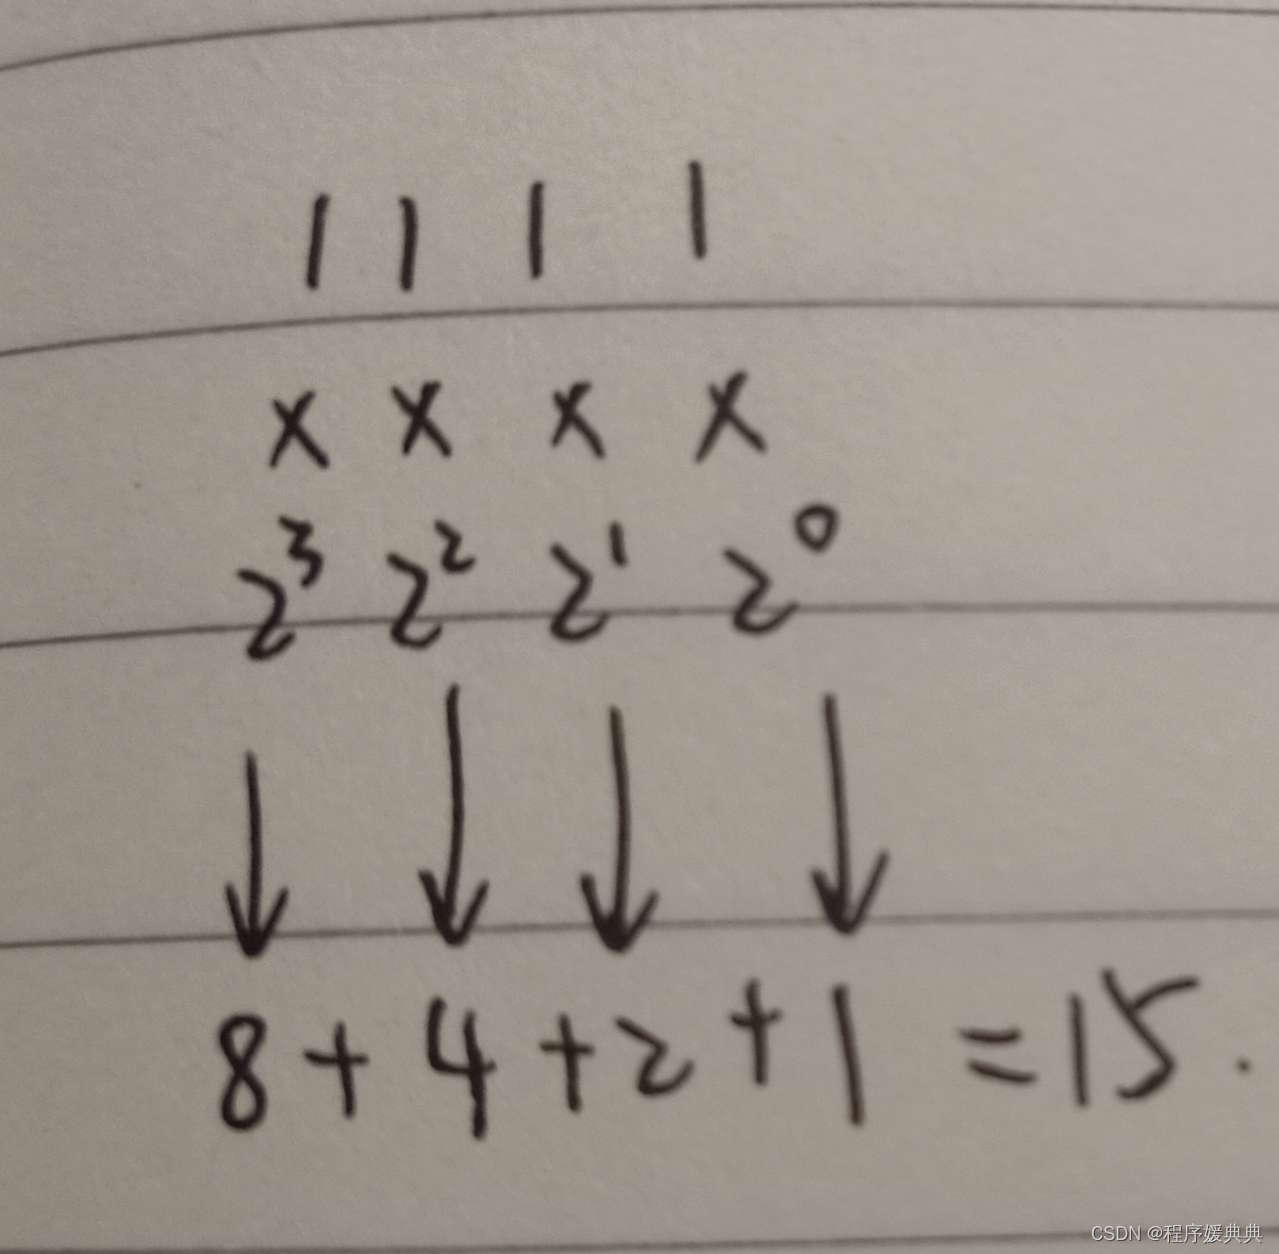 1 1 1 1
× × × ×
2³ 2² 2¹ 2⁰
↓ ↓ ↓ ↓
8 + 4 + 2 + 1 = 15.
CSDN @程序媛典典